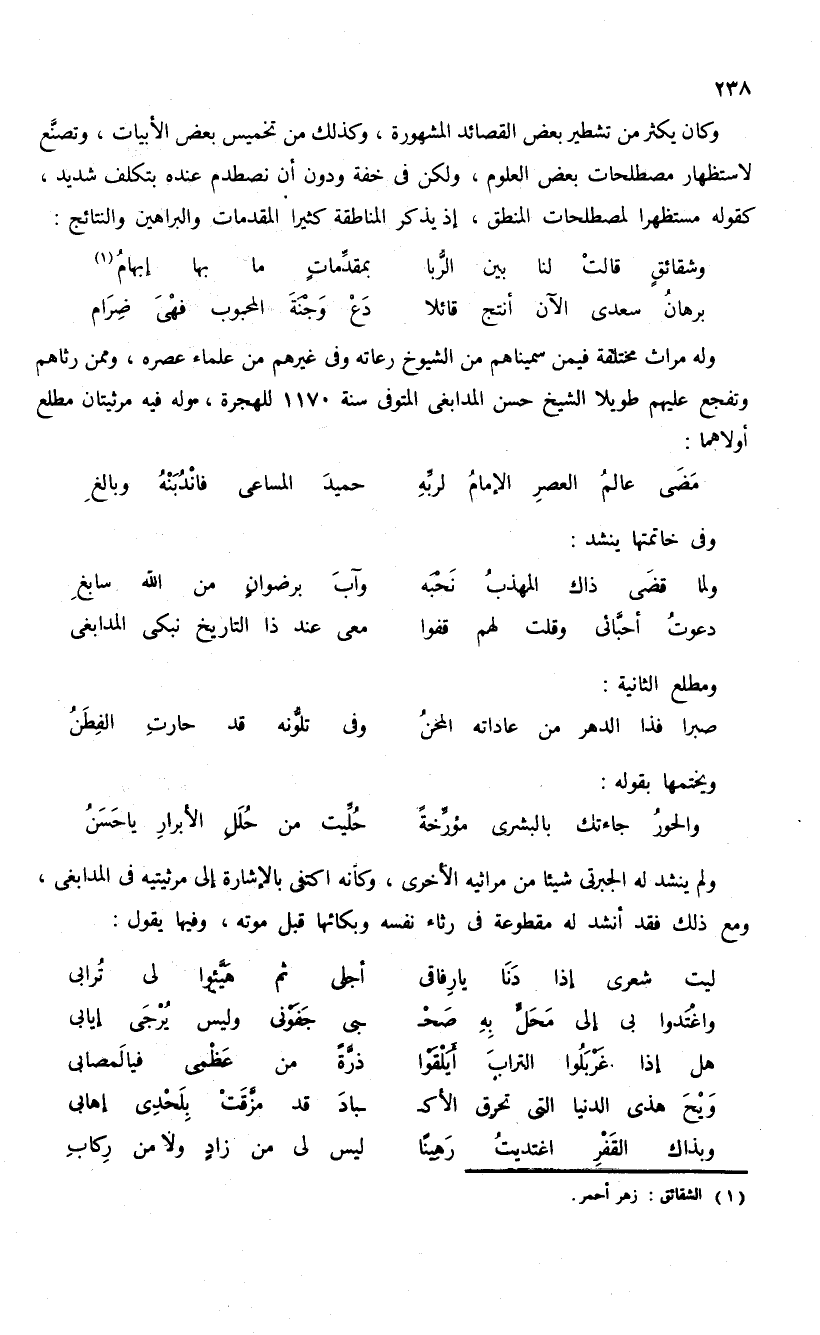 ٢٣٨
وكان يكثر من تشطير بعض القصائد المشهورة ، وكذلك من تخميس بعض الأبيات ، وتصنَّع
لاستظهار مصطلحات بعض العلوم ، ولكن فى خفة ودون أن نصطدم عنده بتكلف شديد ،
كقوله مستظهرا لمصطلحات المنطق ، إذ يذكر المناطقة كثيرا المقدمات والبراهين والنتائج :
وشقائقٍ قالتْ لنا بين الرُّبا بمقدِّماتٍ ما بها إبهامُ(١)
برهانُ سعدى الآن أنتج قائلا دَعْ وَجْنَةَ المحبوب فهْىَ ضِرَام
وله مراث مختلفة فيمن سميناهم من الشيوخ رعاته وفى غيرهم من علماء عصره ، وممن رثاهم
وتفجع عليهم طويلا الشيخ حسن المدابغى المتوفى سنة ١١٧٠ للهجرة ، وله فيه مرثيتان مطلع
أولاهما :
مَضَى عالمُ العصرِ الإمامُ لربِّهِ حميدَ المساعى فانْدُبَنْهُ وبالغِ
وفى خاتمتها ينشد :
ولما قضَى ذاك المهذبُ نَحْبَه وآبَ برضوانٍ من الله سابغِ
دعوتُ أحبَّائى وقلت لهم قفوا معى عند ذا التاريخ نبكى المدابغى
ومطلع الثانية :
صبرا فذا الدهر من عاداته المحنُ وفى تلوُّنه قد حارتِ الفِطَنُ
ويختمها بقوله :
والحورُ جاءتك بالبشرى مؤرِّخةً حُلِّيت من حُلَلِ الأبرارِ ياحَسَنُ
ولم ينشد له الجبرتى شيئا من مراثيه الأخرى ، وكأنه اكتفى بالإشارة إلى مرثيتيه فى المدابغى ،
ومع ذلك فقد أنشد له مقطوعة فى رثاء نفسه وبكائها قبل موته ، وفيها يقول :
ليت شعرى إذا دَنَا يارِفاقى أجلى ثم هَيَّئوا لى تُرابى
واغْتَدوا بى إلى مَحَلٍّ بِهِ صَحْـ ـبى جَفَوْنى وليس يُرْجَى إيابى
هل إذا غَرْبَلُوا الترابَ أَيَلْقَوْا ذرَّةً من عَظْمِى فيالَمصابى
وَيْحَ هذى الدنيا التى تحرق الأكـ ـبادَ قد مزَّقَتْ بِلَحْدِى إهابى
وبذاك القَفْرِ اغتديتُ رَهِينًا ليس لى من زادٍ ولا من رِكابِ
(١) الشقائق : زهر أحمر.